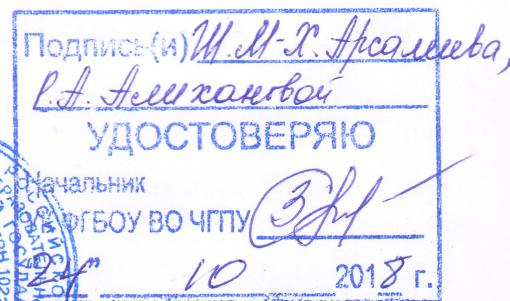 Подпись(и) Ш.М-Х. Арсалиева,
Р.А. Алихановой
УДОСТОВЕРЯЮ
Начальник
ФГБОУ ВО ЧГПУ
"24" 10 2018 г.